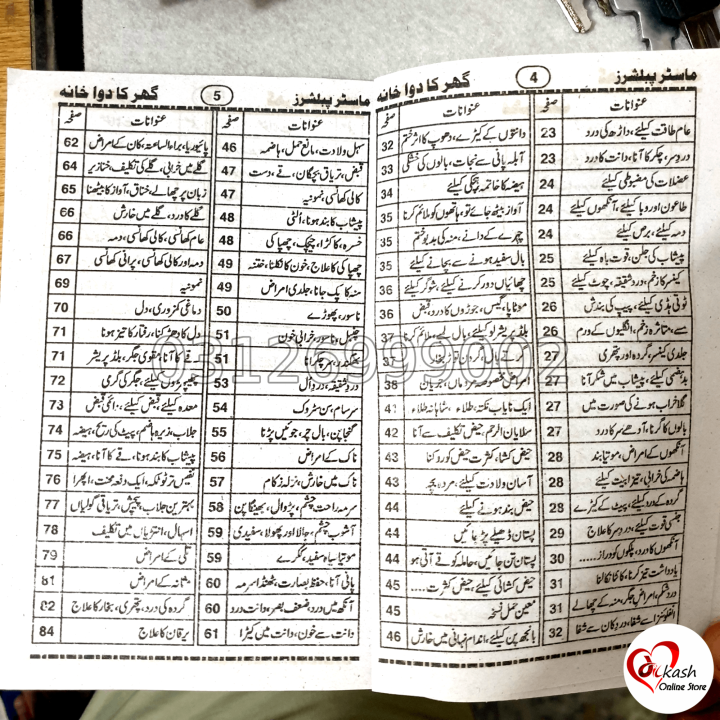 ماسٹر پبلشرز 4 گھر کا دوا خانہ
صفحہ عنوانات صفحہ عنوانات
عام طاقت کیلئے، داڑھ کی درد 23
درد سر، چکر کا آنا، دانت کا درد 23
عضلات کی مضبوطی کیلئے 24
طاعون اور وبا کیلئے، آنکھوں کیلئے 24
دمہ کیلئے، برص کیلئے 24
پیشاب کی جلن، قوت باہ کیلئے 25
کینسر کا زخم، درد شقیقہ، چوٹ کیلئے 25
ٹوٹی ہڈی کیلئے، پیپ کی بندش 26
سے، متاثرہ زخم، انگلیوں کے ورم 26
جلدی کینسر، گردہ اور پتھری 27
بدہضمی کیلئے، پیشاب میں شکر آنا 27
گلا خراب ہونے کی صورت میں 27
بالوں کا گرنا، آدھے سر کا درد 27
آنکھوں کے امراض، موتیا بند 28
ہاضمہ کی خرابی، تیزابیت کیلئے 28
گردہ کے درد کیلئے، پیٹ کے کیڑے 28
جنسی قوت کیلئے، درد سر کا علاج 29
آنکھوں کا درد، پلکوں کو دراز..... 30
یادداشت تیز کرنا، کانٹا نکالنا 31
درد شکم، امراض جگر، منہ کے چھالے 31
انفلوئنزا سے شفا، درد کان سے شفا 32
دانتوں کے کیڑے، دھوپ کا اثر ختم 32
آبلہ پائی سے نجات، بالوں کی خشکی 33
ہیضہ کا خاتمہ، ہچکی کیلئے 34
آواز بیٹھ جائے تو، ہاتھوں کو ملائم کرنا 35
چہرے کے دانے، منہ کی بدبو ختم 35
بال سفید ہونے سے بچانے کیلئے 35
چھائیاں دور کرنے کیلئے، شوگر کیلئے 36
موٹاپا، گیس، جوڑوں کا درد، قبض 36
بلڈ پریشر لو کیلئے، بال لمبے، ملائم کرنا 37
37
امراض مخصوصہ مرداں، جریان 38
ایک نایاب نکتہ، طلاء، شاہانہ طلاء 41
سلان الرحم، حیض تکلیف سے آنا 42
حیض کشا، کثرت حیض کو روکنا 43
آسان ولادت کیلئے، مردہ بچہ 43
حیض بند ہونے کیلئے 44
پستان ڈھیلے پڑ جائیں 44
پستان تن جائیں، حاملہ کو قے آتی ہو 44
حیض کشائی کیلئے، حیض کثرت..... 45
معین حمل نسخہ 45
بانجھ پن کیلئے، اندام نہانی میں خارش 46
ماسٹر پبلشرز 5 گھر کا دوا خانہ
صفحہ عنوانات صفحہ عنوانات
سہل ولادت، مانع حمل، ہاضمہ 46
قبض، تریاق بچگان، قے، دست 47
کالی کھانسی، نمونیہ 47
پیشاب کا بند ہونا، الٹی 48
خسرہ، کاکڑا، چیچک، چھپاکی 48
چھپاکی کا علاج، خون کا نکلنا، ختنہ 49
منہ کا پک جانا، جلدی امراض 49
ناسور، پھوڑے 50
چنبل، ناسور، خرابی خون 51
بھگندر، سر چکرانا 51
درد شقیقہ، درد دل 53
سرسام، سن سٹروک 54
گنجا پن، بال چر، جوئیں پڑنا 55
ناک کے امراض 56
ناک میں خارش، نزلہ زکام 57
سرمہ راحت چشم، پڑوال، بھینگا پن 58
آشوب چشم، جالا اور پھولا، سفیدی 59
موتیا سیاہ سفید، ککرے 59
پانی آنا، حفظ بصارت، ٹھنڈا سرمہ 60
آنکھ میں درد، ضعف بصر، دانت درد 60
دانت سے خون، دانت میں کیڑا 61
پائیوریا، براء الساعتہ، کان کے امراض 62
گلے میں خرابی، گلے کی تکلیف، خنازیر 64
زبان پر چھالے، خناق، آواز کا بیٹھنا 65
گلے کا درد، گلے میں خارش 66
عام کھانسی، کالی کھانسی، دمہ 66
دمہ اور کالی کھانسی، پرانی کھانسی 67
نمونیہ 69
دماغی کمزوری، دل 70
دل کا دھڑکنا، رفتار کا تیز ہونا 71
قے کا آنا، مقوی جگر، بلڈ پریشر 71
پھیپھڑوں کیلئے، جگر کی گرمی 72
معدہ کیلئے، قبض کیلئے، دائمی قبض 73
جلاب، زیرہ ہاضم، پیٹ کی ریح، ہیضہ 74
پیشاب کا بند ہونا، قے کا آنا، ہیضہ 75
نفیس تر ٹوٹکہ، ایک دفعہ محنت، اپھرا 76
بہترین جلاب، پیچش، تریاقی گولیاں 77
اسہال، انتڑیاں میں تکلیف 78
تلی کے امراض 79
مثانہ کے امراض 81
گردہ کی درد، پتھری، بخار کا علاج 82
یرقان کا علاج 84
03126999002
Dilkash
Online Store